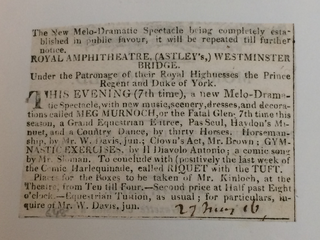 The New Melo-Dramatic Spectacle being completely esta-
blished in public favour, it will be repeated till further
notice.
ROYAL AMPHITHEATRE, (ASTLEY's,) WESTMINSTER
BRIDGE.
Under the Patronage of their Royal Highnesses the Prince
Regent and Duke of York.
THIS EVENING (7th time), a new Melo-Drama-
tic Spectacle, with new music, scenery, dresses, and decora-
tions called MEG MURNOCH, or the Fatal Glen; 7th time this
season, a Grand Equestrian Entree, Pas Seul, Haydon's Mi-
nuet, and a Country Dance, by thirty Horses. Horseman-
ship, by Mr. W. Davis, jun.; Clown's Act, Mr. Brown; GYM-
NASTIC EXERCISES, by Il Diavolo Antonio; a comic song
by Mr. Sloman. To conclude with (positively the last week of
the Comic Harlequinade, called RIQUET with the TUFT.
Places for the Boxes to be taken of Mr. Kinloch, at the
Theatre, from Ten till Four.—Second price at Half past Eight
o'clock.—Equestrian Tuition, as usual; for particulars, in-
quire of Mr. W. Davis, jun.
27 16